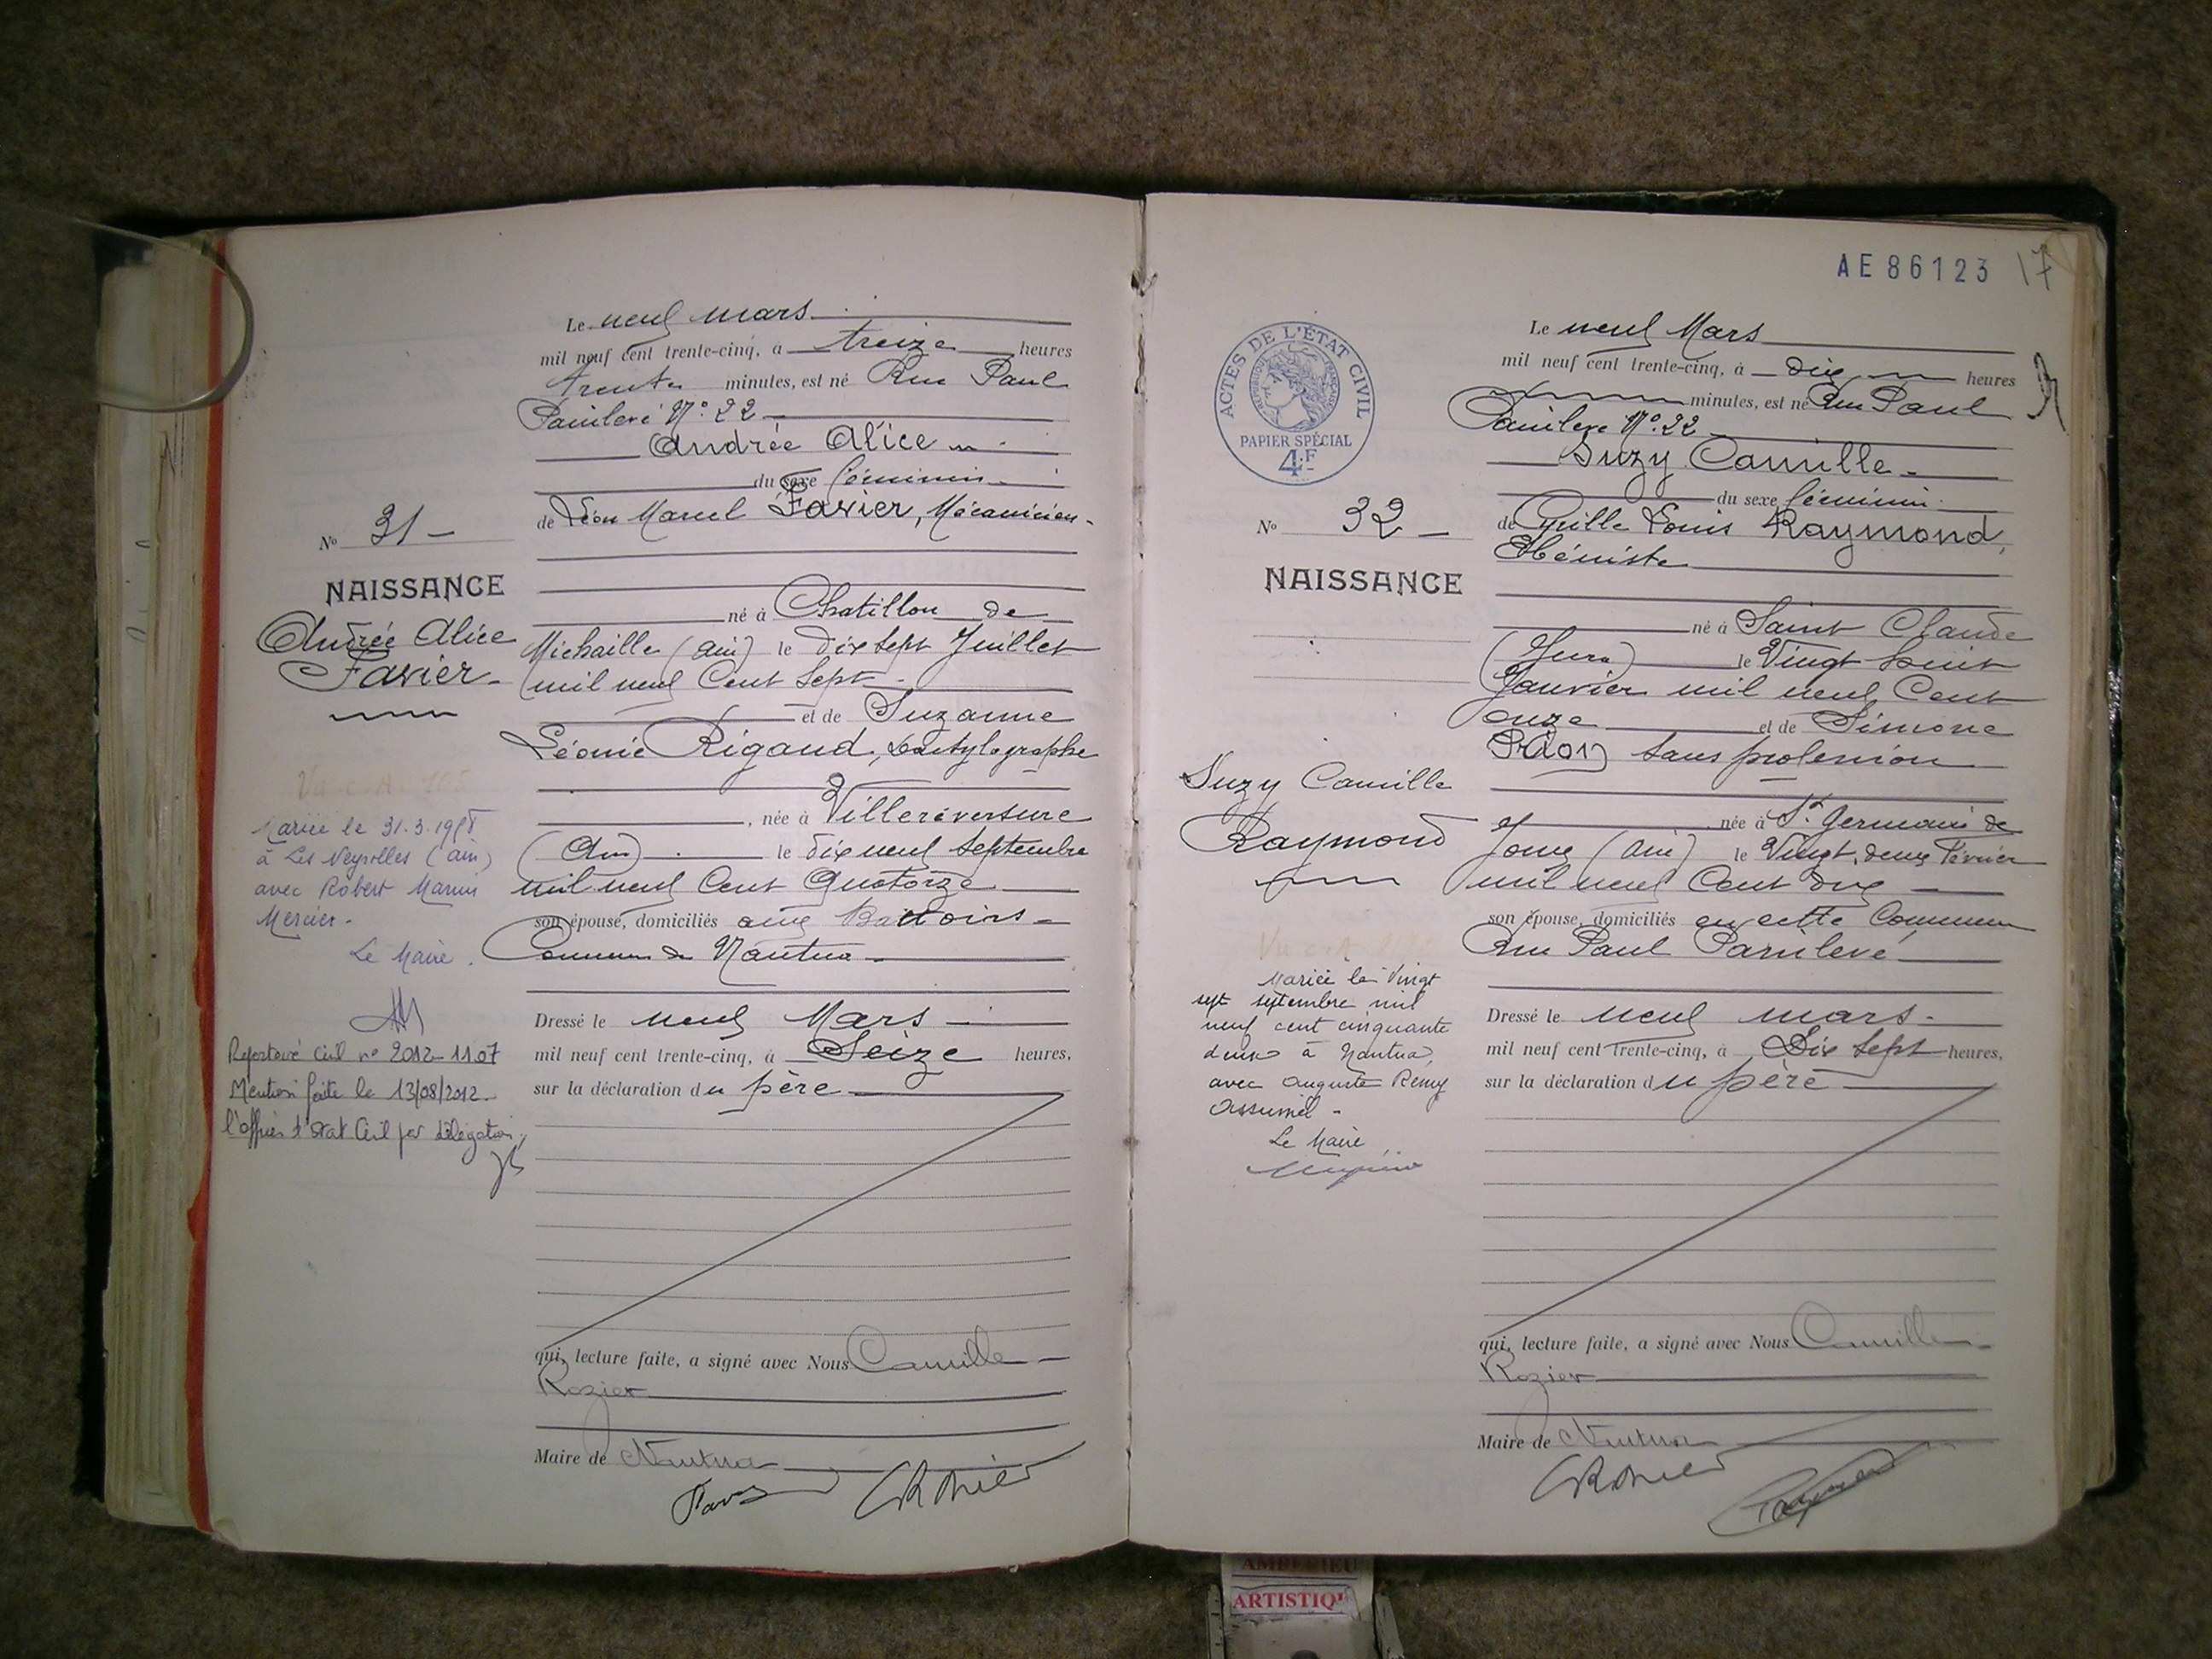 Le neuf mars
mil neuf cent trente-cinq, à treize heures
trente minutes, est né Rue Paul
Painlevé N° 22
Andrée Alice
du sexe féminin
de Léon Marcel Favier, Mécanicien
N° 31
NAISSANCE
Andrée Alice
Favier
né à Chatillon de
Michaille (Ain) le dix sept Juillet
mil neuf Cent Sept
et de Suzanne
Léonie Rigaud, Dactylographe
née à Villereversure
(Ain) le dix neuf Septembre
mil neuf Cent Quatorze
son épouse, domiciliés aux Battoirs
Commune de Nantua
Mariée le 31.3.19
à Les Neyrolles (ain)
avec Robert Marius
Mercier
Le Maire
Dressé le neuf Mars
mil neuf cent trente-cinq, à Seize heures,
sur la déclaration du père
Répertoire Civil n° 2012-1107
Mention faite le 13/08/2012
l'officier d'Etat Civil par délégation
qui, lecture faite, a signé avec Nous Camille
Rozier
Maire de Nantua
AE 86123 17
ACTES DE L'ÉTAT CIVIL
PAPIER SPÉCIAL
4F
Le neuf Mars
mil neuf cent trente-cinq, à dix heures
minutes, est né Rue Paul
Painlevé N° 22
Suzy Camille
du sexe féminin
N° 32
NAISSANCE
de Louis Raymond,
Ebéniste
né à Saint Claude
(Jura) le Vingt huit
Janvier mil neuf Cent
onze et de Simone
sans profession
Suzy Camille
Raymond
née à St Germain de
Joux (Ain) le Vingt deux Février
mil neuf Cent dix
son épouse, domiciliés en cette Commune
Rue Paul Painlevé
Mariée le Vingt
sept septembre mil
neuf cent cinquante
deux à Nantua
avec Auguste Rémy
Le Maire
Dressé le neuf mars
mil neuf cent trente-cinq, à Dix Sept heures,
sur la déclaration du père
qui, lecture faite, a signé avec Nous Camille
Rozier
Maire de Nantua
ARTISTIQ